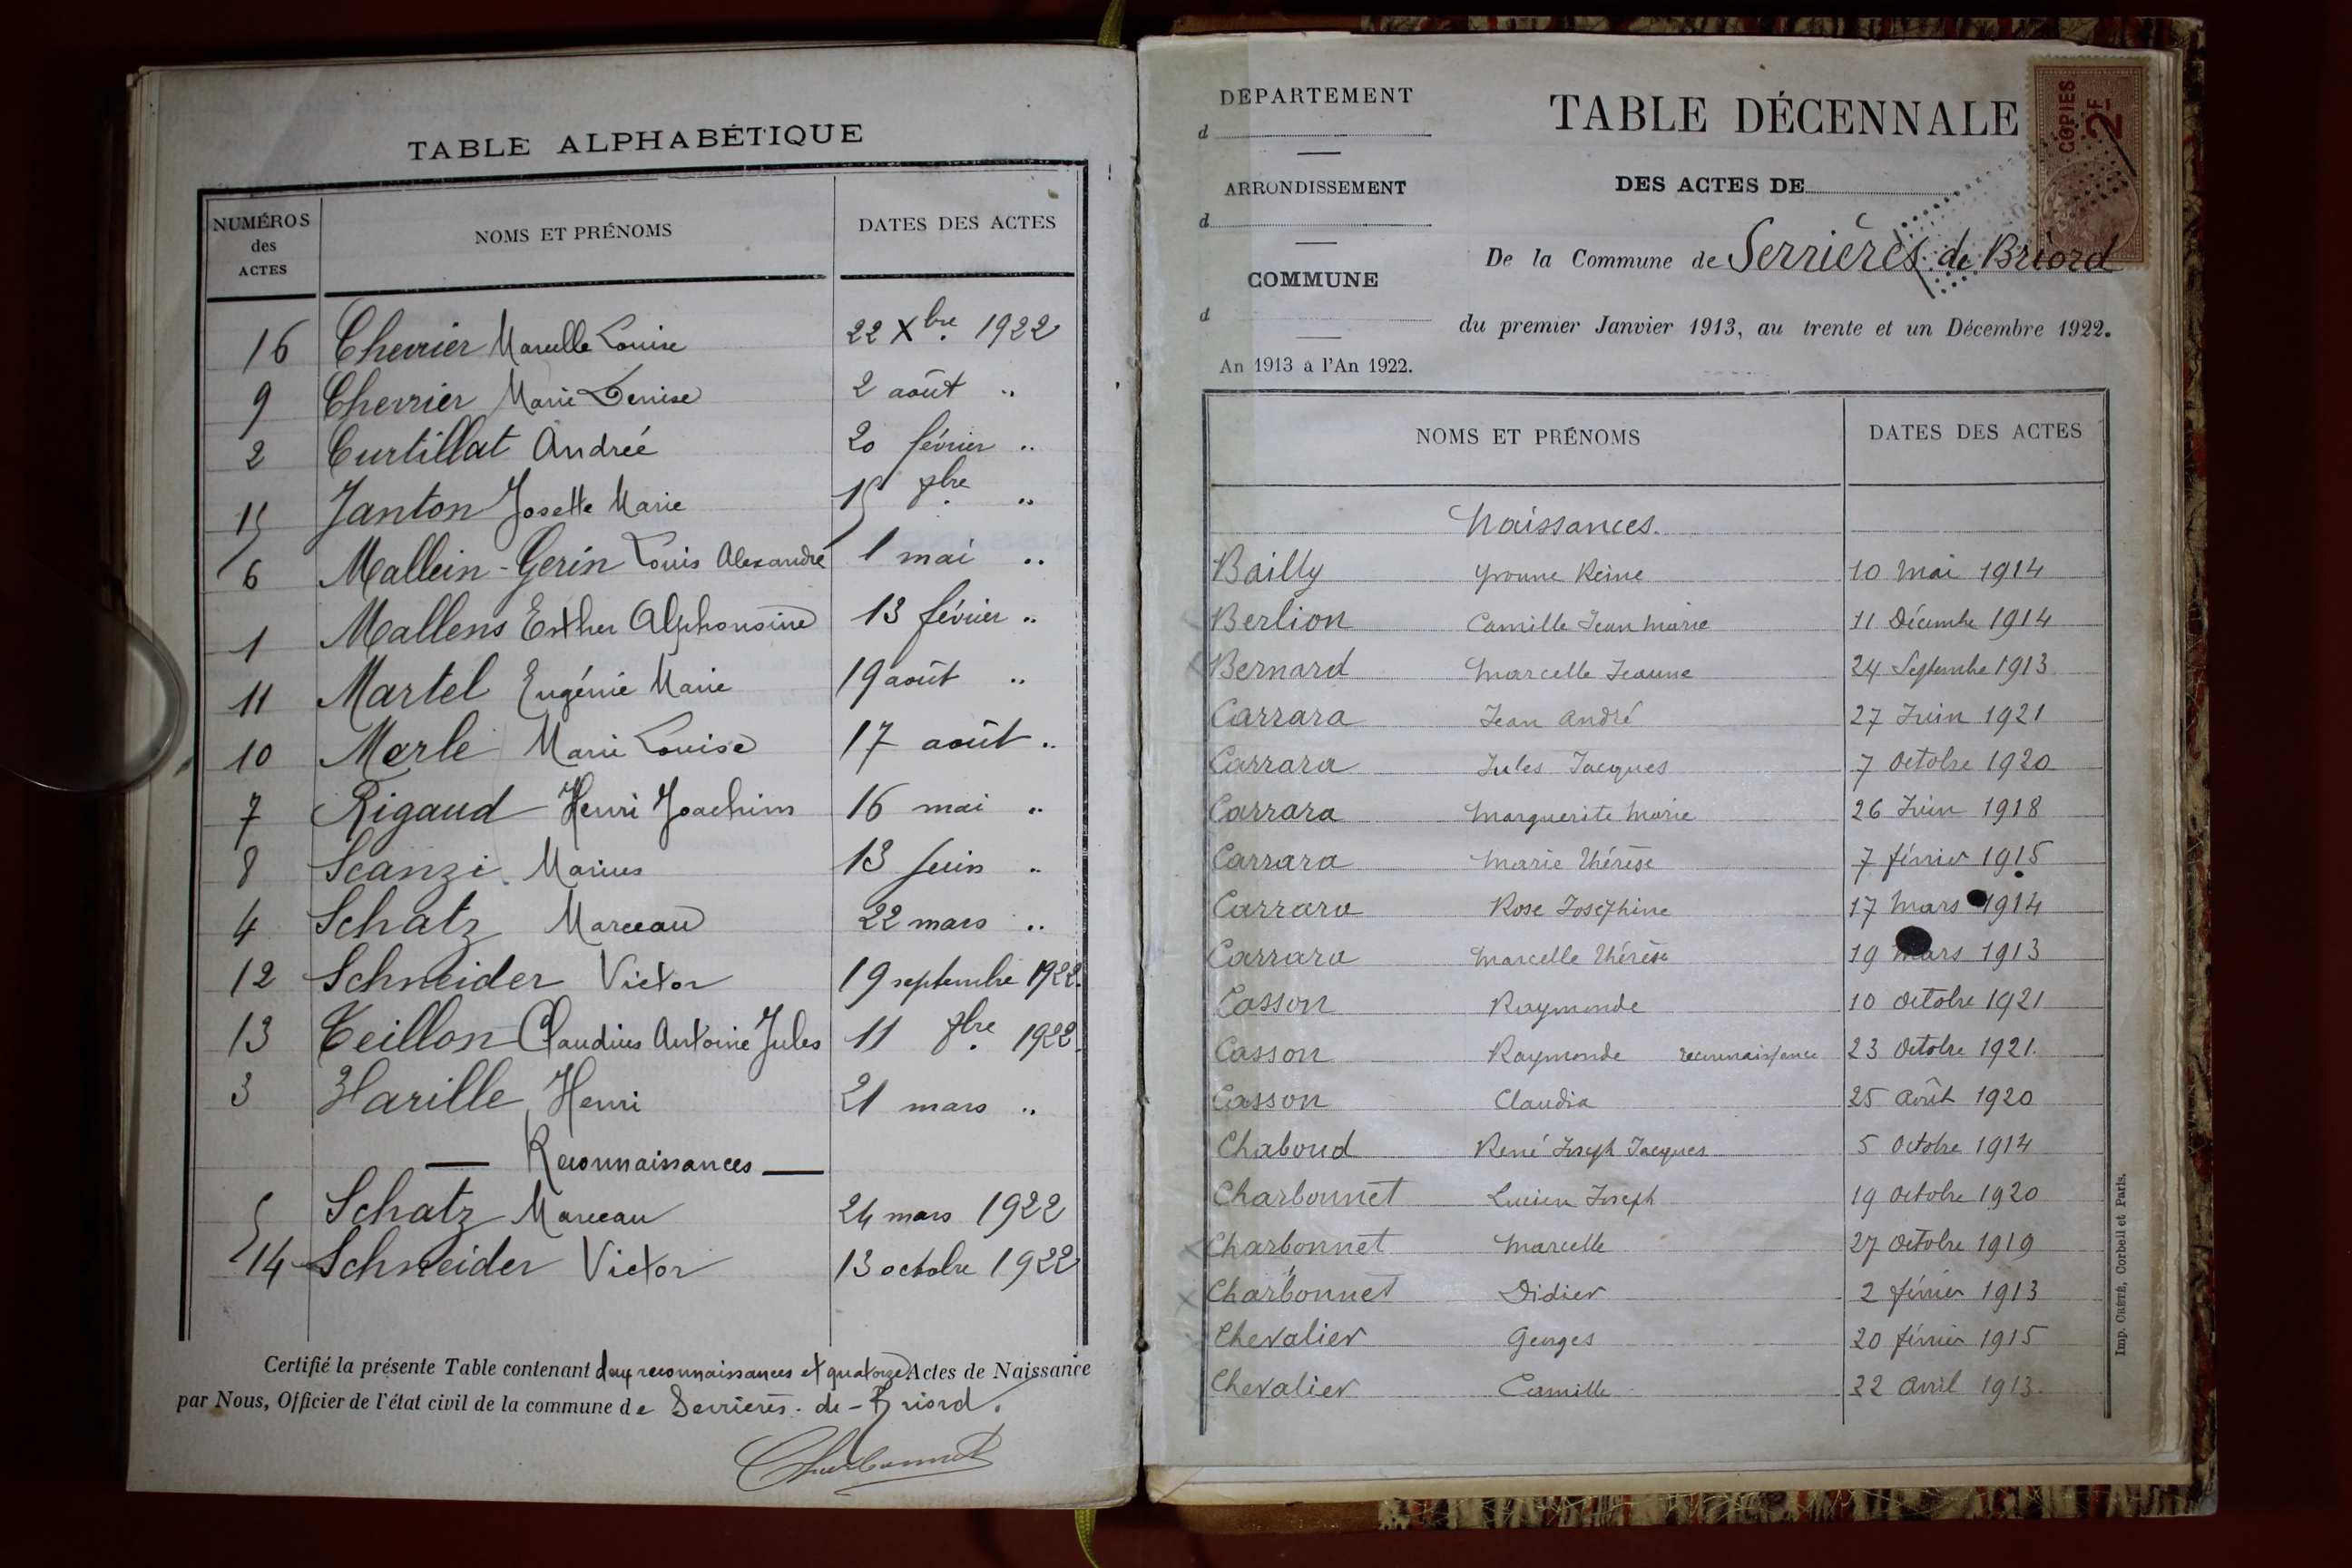 TABLE ALPHABÉTIQUE
NUMÉROS des ACTES NOMS ET PRÉNOMS DATES DES ACTES
16 Chevrier Marcelle Louise 22 Xbre. 1922
9 Chevrier Marie Denise 2 août ..
2 Curtillat Andrée 20 février ..
15 Janton Josette Marie 15 9bre ..
6 Mallein-Gerin Louis Alexandre 1 mai ..
1 Mallens Esther Alphonsine 13 février ..
11 Martel Eugénie Marie 19 août ..
10 Merle Marie Louise 17 août ..
7 Rigaud Henri Joachim 16 mai ..
8 Scanzi Marius 13 Juin ..
4 Schatz Marceau 22 mars ..
12 Schneider Victor 19 septembre 1922.
13 Teillon Claudius Antoine Jules 11 8bre. 1922
3 Harille Henri 21 mars ..
— Reconnaissances —
5 Schatz Marceau 24 mars 1922
14 Schneider Victor 13 octobre 1922
Certifié la présente Table contenant deux reconnaissances et quatorze Actes de Naissance
par Nous, Officier de l'état civil de la commune de Serrières-de-Briord.
Charbonnet
DÉPARTEMENT
d
ARRONDISSEMENT
d
COMMUNE
d
An 1913 à l'An 1922.
TABLE DÉCENNALE
COPIES
2F
DES ACTES DE
De la Commune de Serrières de Briord
du premier Janvier 1913, au trente et un Décembre 1922.
NOMS ET PRÉNOMS DATES DES ACTES
Naissances.
Bailly Yvonne Reine 10 Mai 1914
Berlion Camille Jean Marie 11 Décembre 1914
Bernard Marcelle Jeanne 24 Septembre 1913
Carrara Jean André 27 Juin 1921
Carrara Jules Jacques 7 Octobre 1920
Carrara Marguerite Marie 26 Juin 1918
Carrara Marie Thérèse 7 février 1915
Carrara Rose Joséphine 17 Mars 1914
Carrara Marcelle Thérèse 19 Mars 1913
Casson Raymonde 10 Octobre 1921
Casson Raymonde reconnaissance 23 Octobre 1921.
Casson Claudia 25 Août 1920
Chaboud René Joseph Jacques 5 Octobre 1914
Charbonnet Lucien Joseph 19 Octobre 1920
Charbonnet Marcelle 27 Octobre 1919
Charbonnet Didier 2 février 1913
Chevalier Georges 20 février 1915
Chevalier Camille 22 Avril 1913
Imp. CRÉTÉ, Corbeil et Paris.